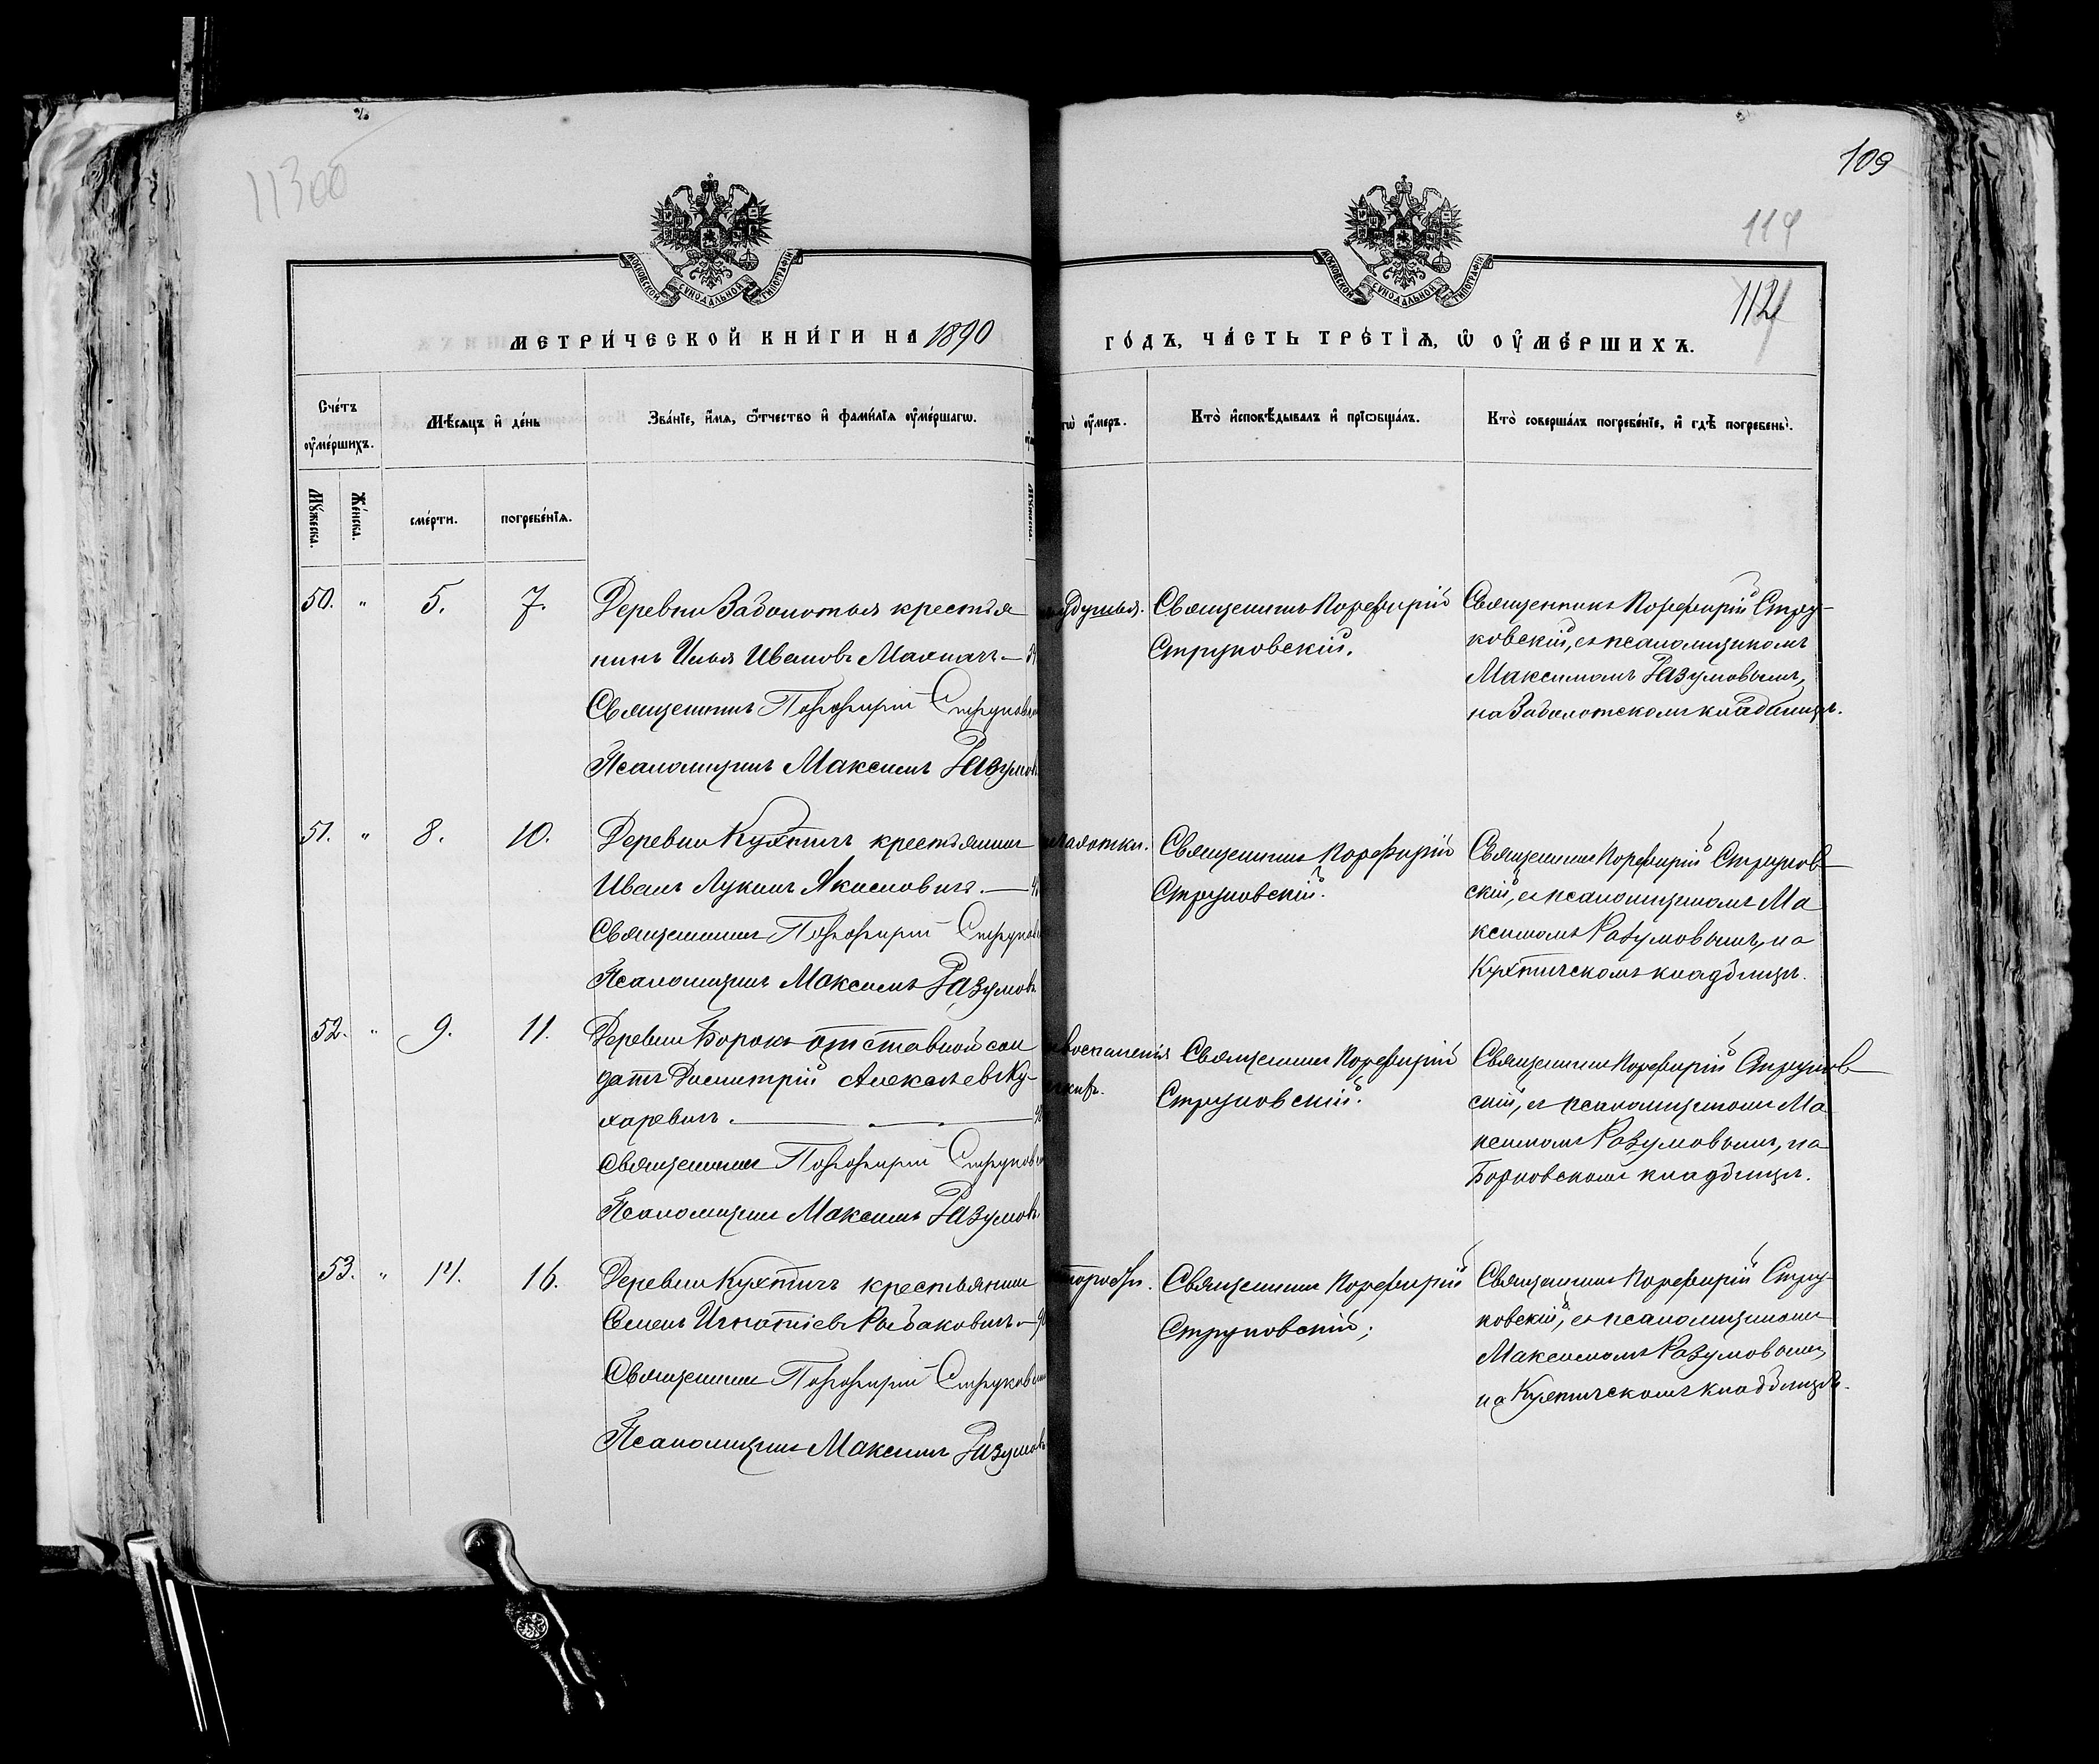 11300
109
119
112
МОСКОВСКОЙ СѴНОДАЛЬНОЙ ТИПОГРАФІИ
МОСКОВСКОЙ СѴНОДАЛЬНОЙ ТИПОГРАФІИ
МЕТРИ́ЧЕСКОЙ КНИ́ГИ НА 1890
ГО́ДЪ, ЧА́СТЬ ТРЕ́ТІѦ, Ѡ҆ ОУ҆МЕ́РШИХЪ.
Сче́тъ оу҆ме́ршихъ.
Мѣ́сяцъ и҆ де́нь
Зва́нїе, и҆́мя, ѻ҆́тчество и҆ фами́лїя оу҆ме́ршагѡ.
гѡ̀ оу҆́меръ.
Кто̀ и҆сповѣ́дывалъ и҆ прїѡбща́лъ.
Кто̀ соверша́лъ погребе́нїе, и҆ гдѣ̀ погребены̀.
Мꙋ́жеска.
Же́нска.
сме́рти.
погребе́нїѧ.
50. " 5. 7.
Деревни Заболотья крестья
нинъ Илья Ивановъ Махначъ —
Священникъ Порфирій Струковскій
Псаломщикъ Максимъ Разумовъ
удушья.
Священникъ Порфирій
Струковскій.
Священникъ Порфирій Стру-
ковскій, съ псаломщикомъ
Максимомъ Разумовымъ,
на Заболотскомъ кладбищѣ.
51. " 8. 10.
Деревни Кухтичъ крестьянинъ
Иванъ Лукинъ Якимовичъ. —
Священникъ Порфирій Струков
Псаломщикъ Максимъ Разумовъ
чахотки.
Священникъ Порфирій
Струковскій.
Священникъ Порфирій Струков-
скій, съ псаломщикомъ Ма
ксимомъ Разумовымъ, на
Кухтичскомъ кладбищѣ.
52. " 9. 11.
Деревни Борокъ отставной сол
датъ Димитрій Алексѣевъ Ку-
харевичъ. —
Священникъ Порфирій Струков
Псаломщикъ Максимъ Разумовъ
воспаленія
Священникъ Порфирій
Струковскій.
Священникъ Порфирій Струков-
скій, съ псаломщикомъ Ма
ксимомъ Разумовымъ, на
Борковскомъ кладбищѣ.
53. " 14. 16.
Деревни Кухтичъ крестьянинъ
Семенъ Игнатіевъ Рыбаковичъ. —
Священникъ Порфирій Струков
Псаломщикъ Максимъ Разумовъ
старости.
Священникъ Порфирій
Струковскій;
Священникъ Порфирій Стру-
ковскій, съ псаломщикомъ
Максимомъ Разумовымъ,
на Кухтичскомъ кладбищѣ.